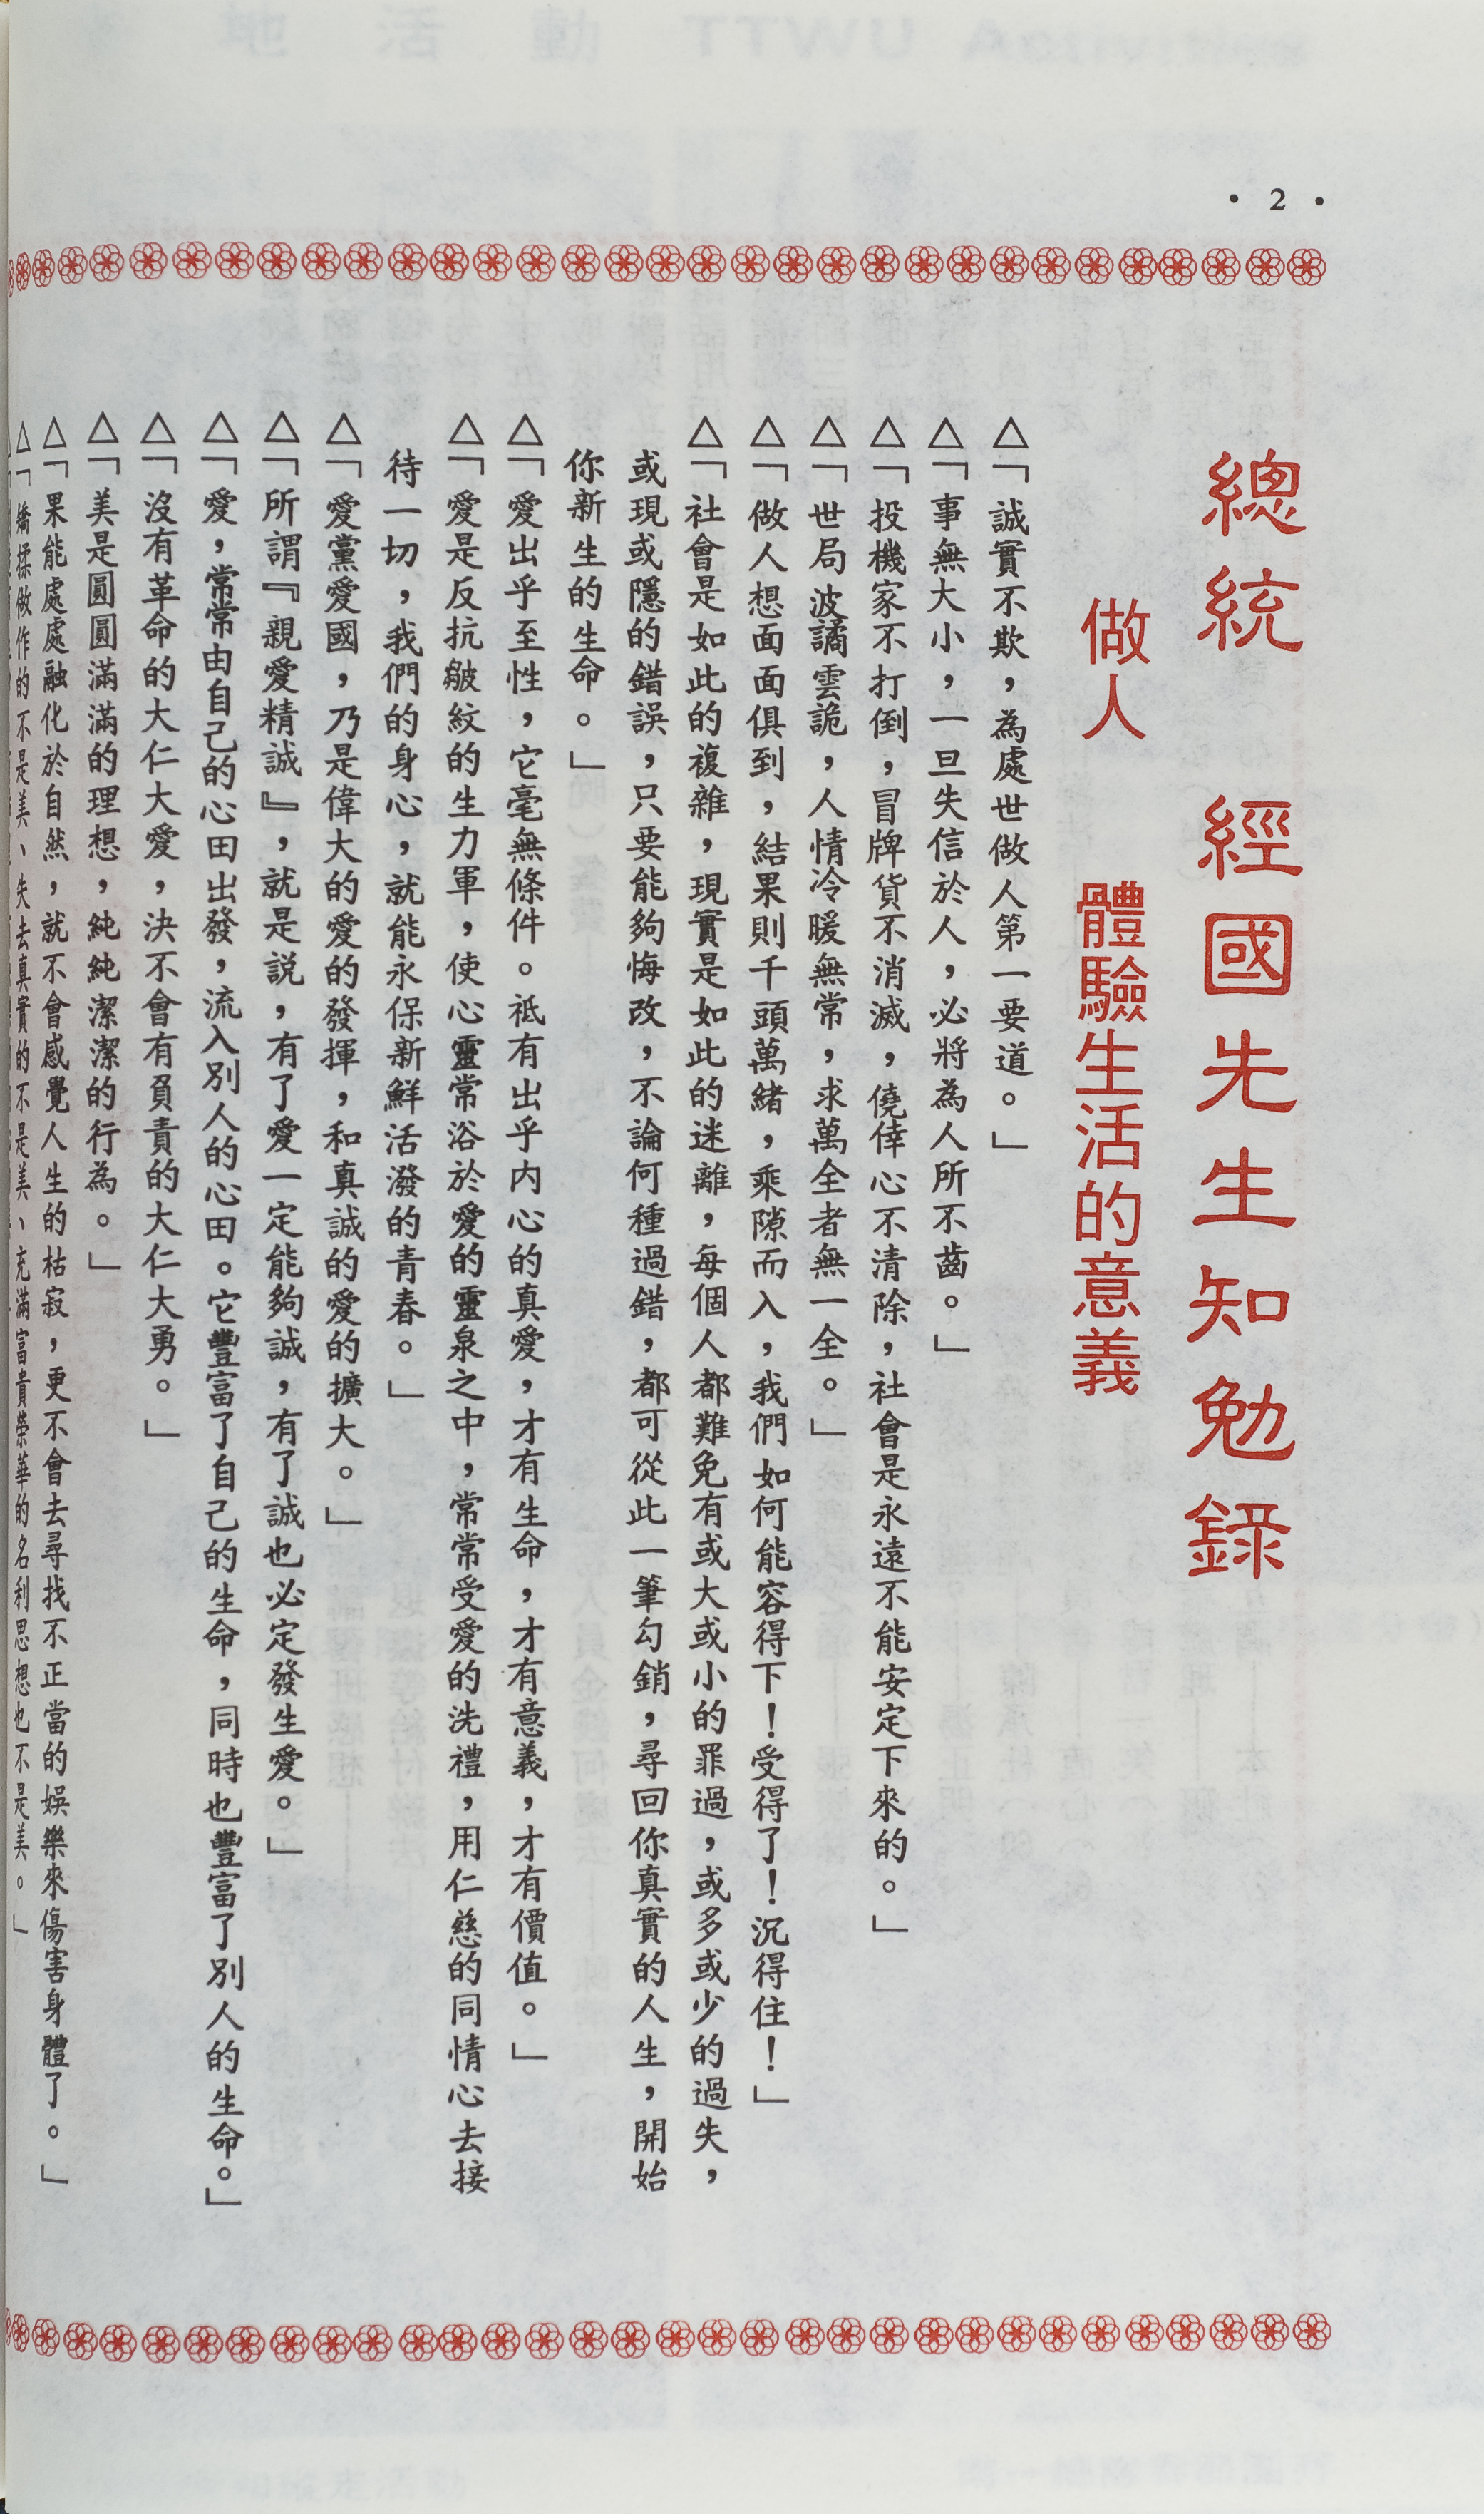 • 2 •
總統 經國先生知勉錄
做人 體驗生活的意義
△「誠實不欺，為處世做人第一要道。」
△「事無大小，一旦失信於人，必將為人所不齒。」
△「投機家不打倒，冒牌貨不消滅，僥倖心不清除，社會是永遠不能安定下來的。」
△「世局波譎雲詭，人情冷暖無常，求萬全者無一全。」
△「做人想面面俱到，結果則千頭萬緒，乘隙而入，我們如何能容得下！受得了！沉得住！」
△「社會是如此的複雜，現實是如此的迷離，每個人都難免有或大或小的罪過，或多或少的過失，
或現或隱的錯誤，只要能夠悔改，不論何種過錯，都可從此一筆勾銷，尋回你真實的人生，開始
你新生的生命。」
△「愛出乎至性，它毫無條件。祗有出乎內心的真愛，才有生命，才有意義，才有價值。」
△「愛是反抗皺紋的生力軍，使心靈常浴於愛的靈泉之中，常常受愛的洗禮，用仁慈的同情心去接
待一切，我們的身心，就能永保新鮮活潑的青春。」
△「愛黨愛國，乃是偉大的愛的發揮，和真誠的愛的擴大。」
△「所謂『親愛精誠』，就是説，有了愛一定能夠誠，有了誠也必定發生愛。」
△「愛，常常由自己的心田出發，流入別人的心田。它豐富了自己的生命，同時也豐富了別人的生命。」
△「沒有革命的大仁大愛，決不會有負責的大仁大勇。」
△「美是圓圓滿滿的理想，純純潔潔的行為。」
△「果能處處融化於自然，就不會感覺人生的枯寂，更不會去尋找不正當的娛樂來傷害身體了。」
△「矯揉做作的不是美、失去真實的不是美、充滿富貴榮華的名利思想也不是美。」